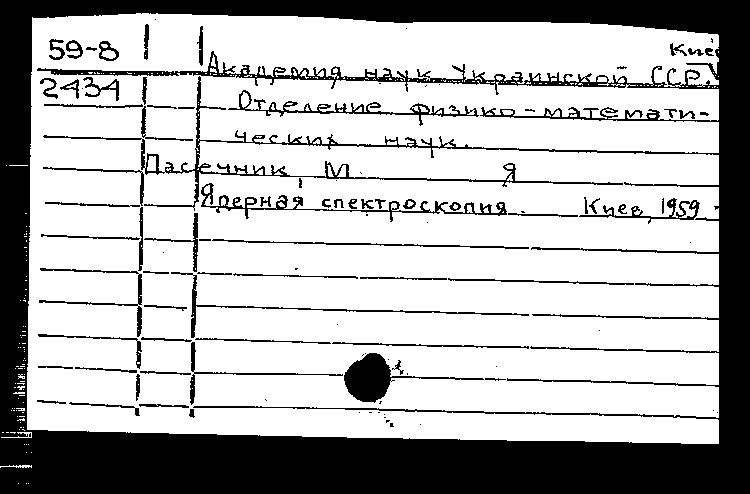 Киев
59-8 Академия наук Украинской ССР.
2434 Отделение физико-математи-
ческих наук.
Пасечник, М Я
Ядерная спектроскопия. Киев, 1959